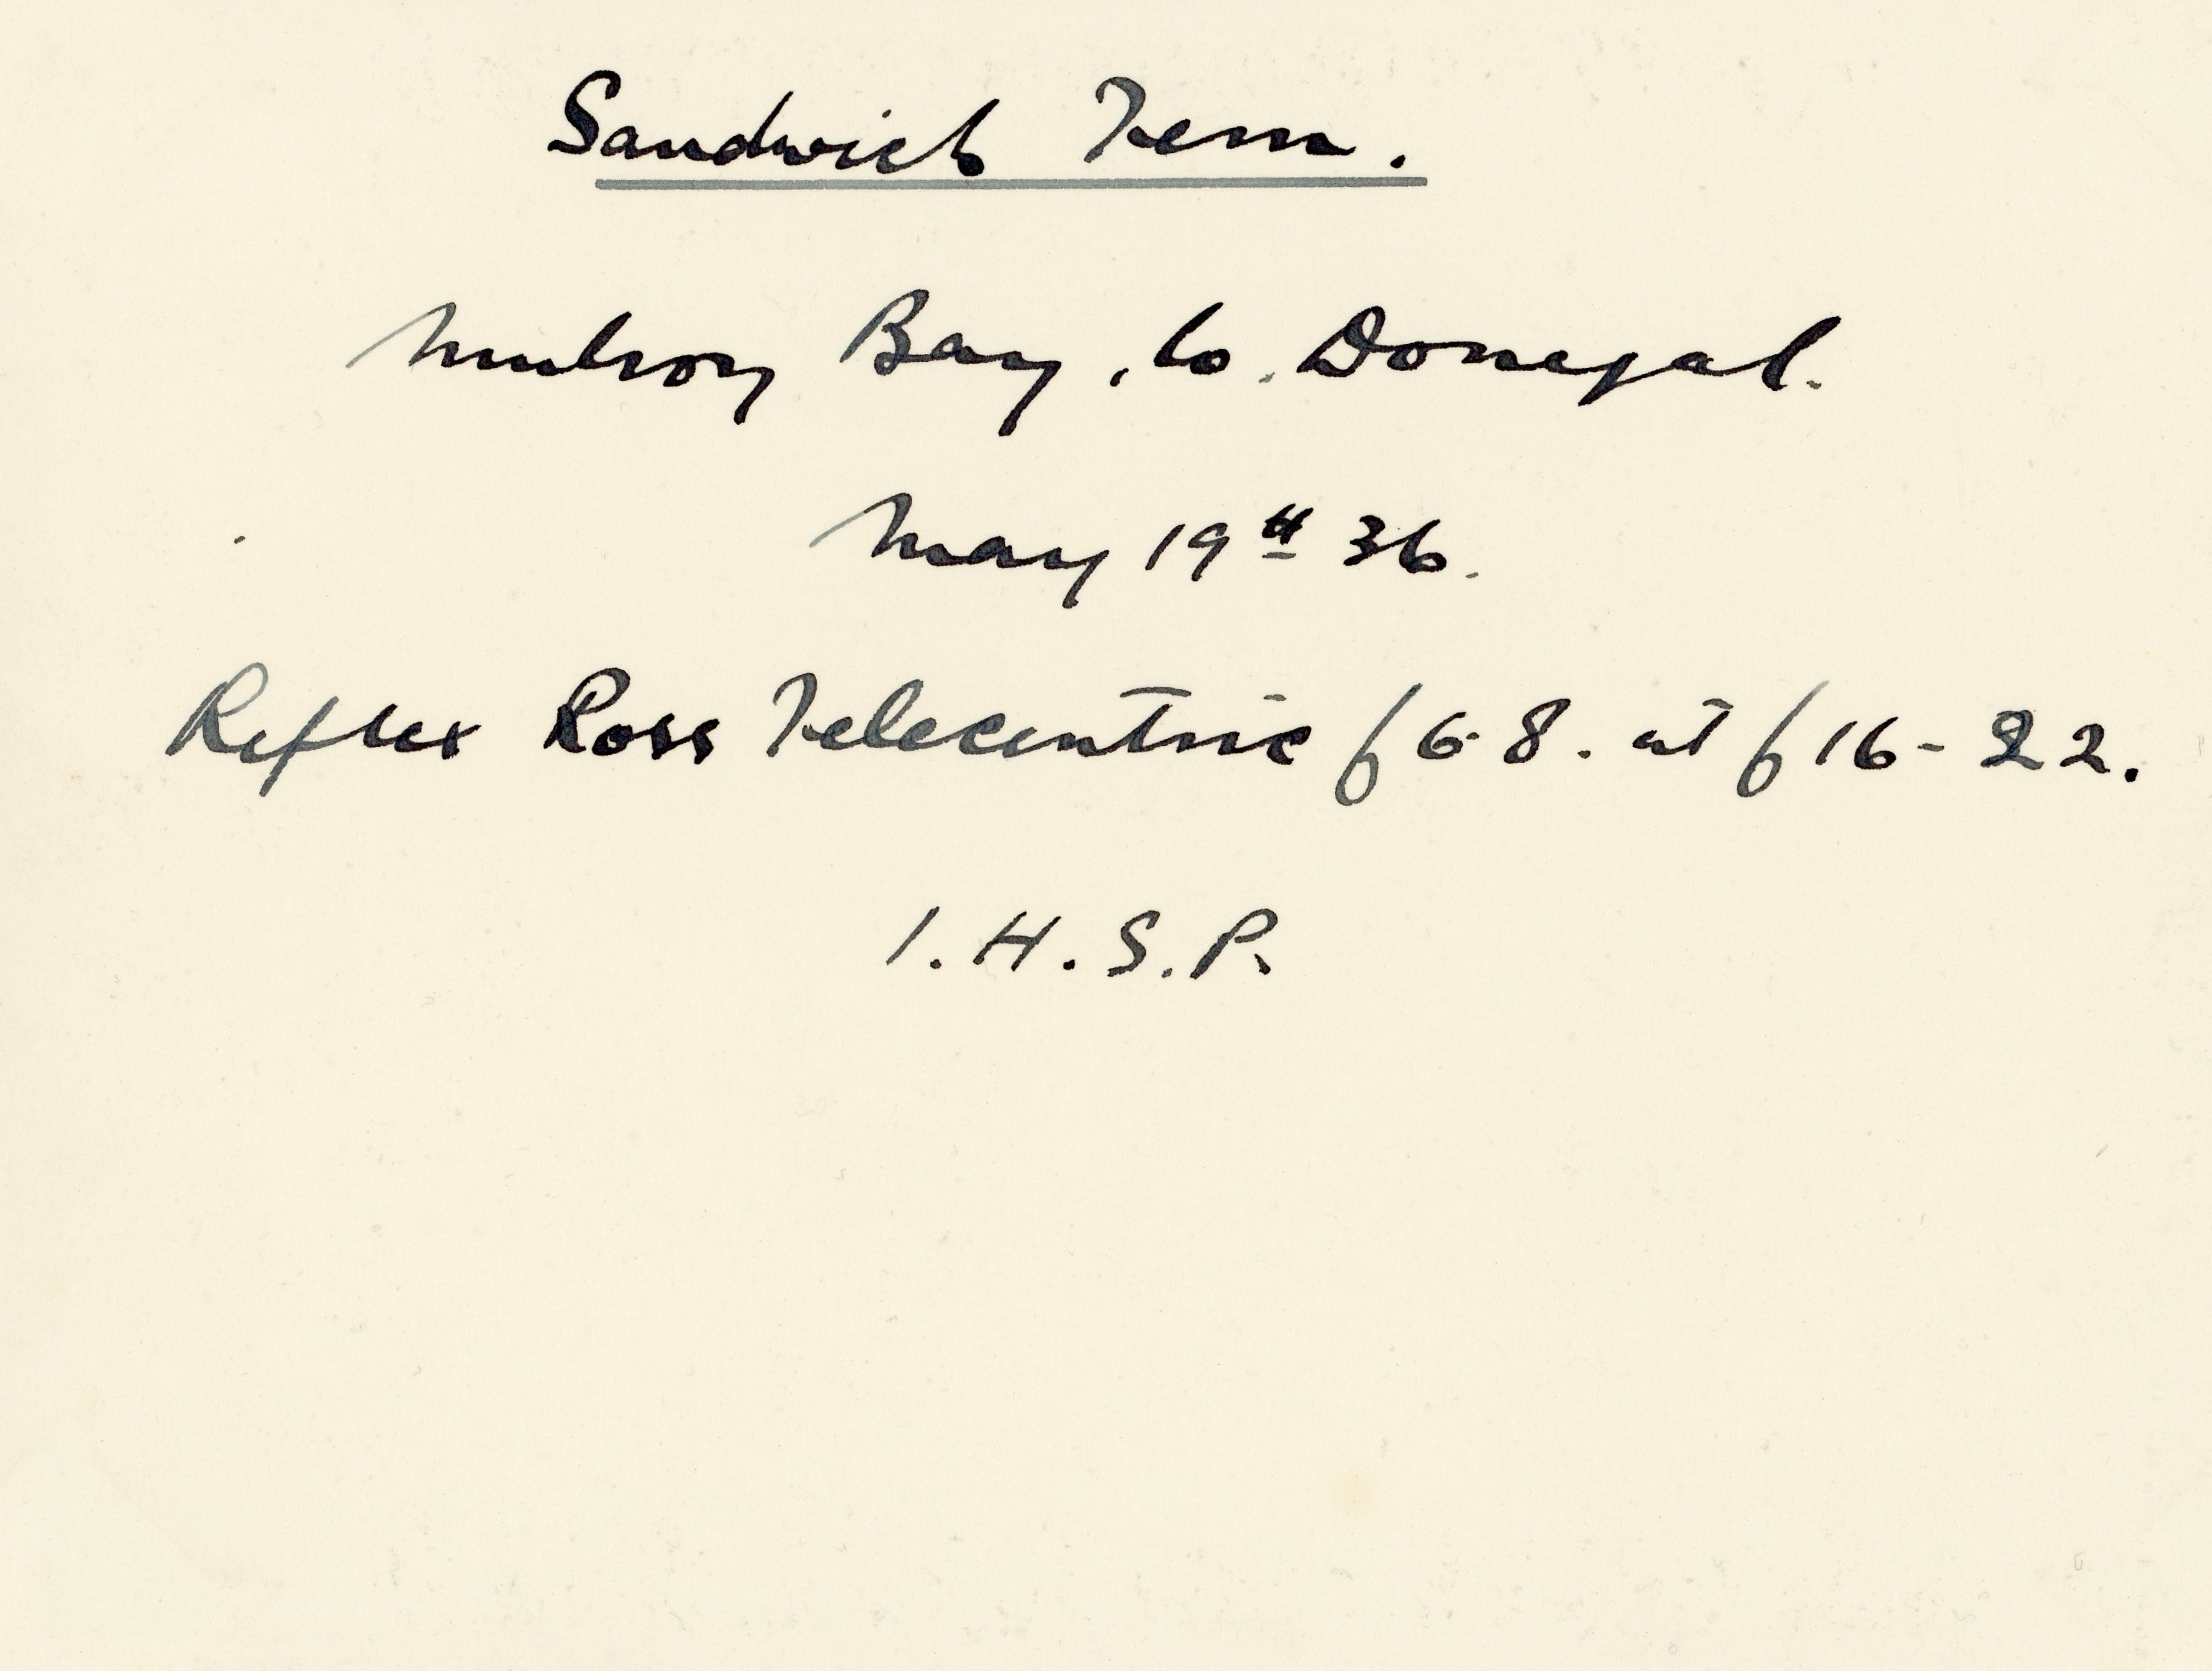 Sandwich Tern.
Mulroy Bay, Co. Donegal.
May 19th 36.
Reflex Ross Telecentric f 6.8. at f 16 - 22.
I.H.S.P.